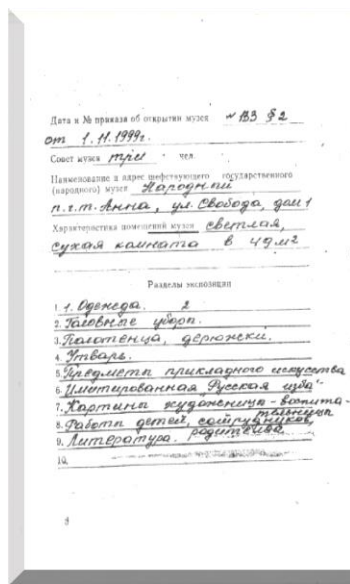 Дата и № приказа об открытии музея № 133 § 2
от 1.11.1999г.
Совет музея три чел.
Наименование и адрес шефствующего государственного
(народного) музея Народный
п.г.т. Анна, ул. Свобода, дом 1
Характеристика помещений музея светлая,
сухая комната в 49м2
Разделы экспозиции
1. 1. Одежда. 2
2. Головные уборы.
3. Полотенца, дерюжки.
4. Утварь.
5. Предметы прикладного искусства
6. Имитированная "Русская изба"
7. Картины художницы - воспита-
тельницы
8. Работы детей, сотрудников,
родителей
9. Литература.
10.
8